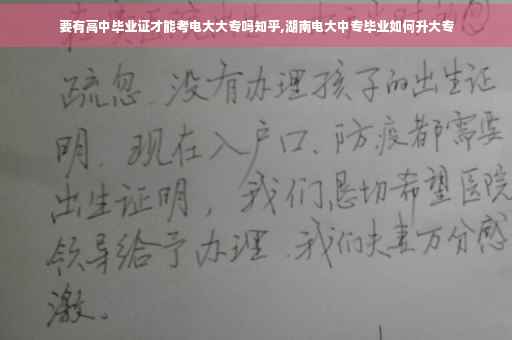 要有高中毕业证才能考电大大专吗知乎,湖南电大中专毕业如何升大专
疏忽、没有办理孩子的出生证
明、现在入户口、防疫都需要
出生证明，我们恳切希望医院
领导给予办理、我们夫妻万分感
激。